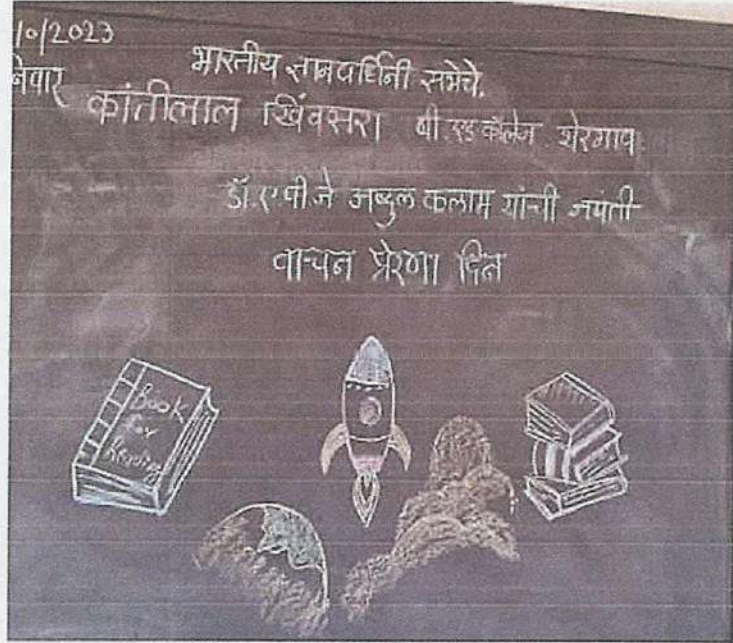 /10/2023
निवार
भारतीय ज्ञानवर्धिनी सभेचे,
कांतीलाल खिंवसरा बी.एड कॉलेज
डॉ. ए.पी.जे अब्दुल कलाम यांची जयंती
वाचन प्रेरणा दिन
Book
for
Reading